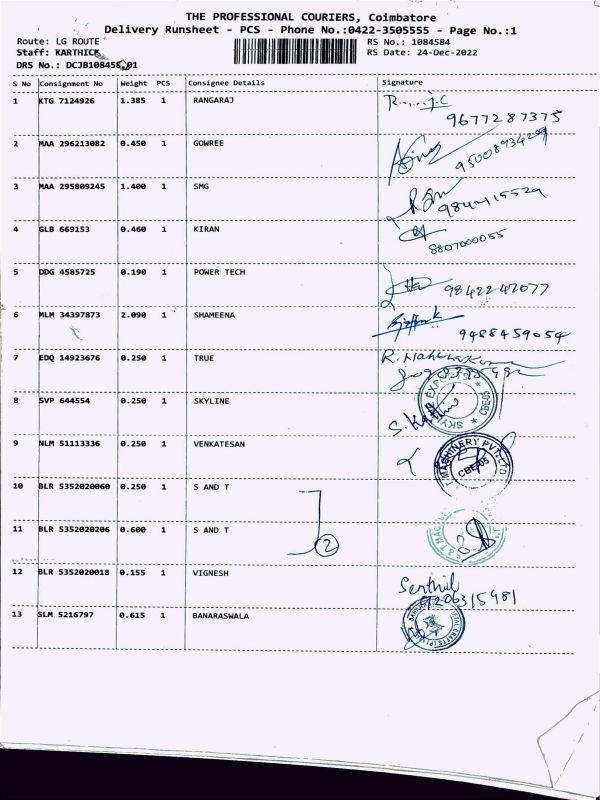 THE PROFESSIONAL COURIERS, Coimbatore
Delivery Runsheet - PCS - Phone No.:0422-3505555 - Page No.:1
Route: LG ROUTE RS No.: 1084584
Staff: KARTHICK RS Date: 24-Dec-2022
DRS No.: DCJB1084584 01
S No Consignment No Weight PCS Consignee Details Signature
1 KTG 7124926 1.385 1 RANGARAJ
9677287375
2 MAA 296213082 0.450 1 GOWREE
9500893429
3 MAA 295809245 1.400 1 SMG
4 GLB 669153 0.460 1 KIRAN
8807000055
5 DDG 4585725 0.190 1 POWER TECH
9842247077
6 MLM 34397873 2.090 1 SHAMEENA
9488459054
7 EDQ 14923676 0.250 1 TRUE
8 SVP 644554 0.250 1 SKYLINE
CBE-05
9 NLM 51113336 0.250 1 VENKATESAN
MACHINERY PVT. LTD
CBE-05
10 BLR 5352020060 0.250 1 S AND T
11 BLR 5352020206 0.600 1 S AND T
2
12 BLR 5352020018 0.155 1 VIGNESH
Senthil
7206315981
13 SLM 5216797 0.615 1 BANARASWALA